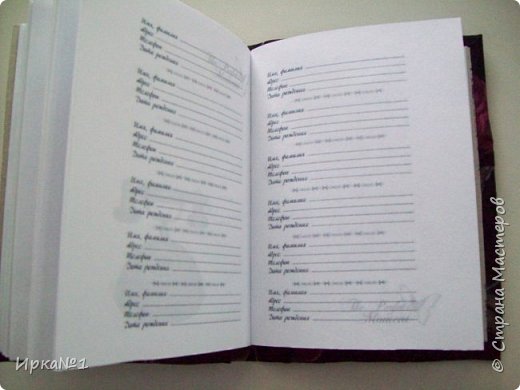 Имя, фамилия
Адрес
Телефон
Дата рождения
Имя, фамилия
Адрес
Телефон
Дата рождения
Имя, фамилия
Адрес
Телефон
Дата рождения
Имя, фамилия
Адрес
Телефон
Дата рождения
Имя, фамилия
Адрес
Телефон
Дата рождения
Имя, фамилия
Адрес
Телефон
Дата рождения
Имя, фамилия
Адрес
Телефон
Дата рождения
Имя, фамилия
Адрес
Телефон
Дата рождения
Имя, фамилия
Адрес
Телефон
Дата рождения
Имя, фамилия
Адрес
Телефон
Дата рождения
Имя, фамилия
Адрес
Телефон
Дата рождения
Имя, фамилия
Адрес
Телефон
Дата рождения
ИркаN°1
© Страна Мастеров